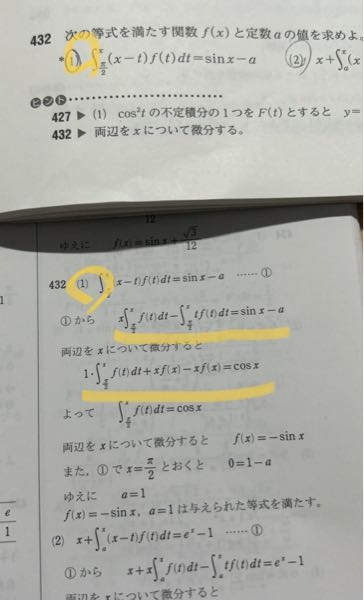 432 次の等式を満たす関数 f(x) と定数 a の値を求めよ。
*(1) ∫_{π/2}^{x}(x−t)f(t)dt=sin x−a (2) x+∫_{a}^{x}(x
ヒント
427 ▶ (1) cos²t の不定積分の1つを F(t) とすると y=
432 ▶ 両辺を x について微分する。
12
ゆえに f(x)=sin x+√3/12
432 (1) ∫^{x}(x−t)f(t)dt=sin x−a ……①
①から x∫_{π/2}^{x}f(t)dt−∫_{π/2}^{x}tf(t)dt=sin x−a
両辺を x について微分すると
1·∫_{π/2}^{x}f(t)dt+xf(x)−xf(x)=cos x
よって ∫_{π/2}^{x}f(t)dt=cos x
両辺を x について微分すると f(x)=−sin x
また，①で x=π/2 とおくと 0=1−a
ゆえに a=1
f(x)=−sin x，a=1 は与えられた等式を満たす。
(2) x+∫_{a}^{x}(x−t)f(t)dt=e^{x}−1 ……①
①から x+x∫_{a}^{x}f(t)dt−∫_{a}^{x}tf(t)dt=e^{x}−1
両辺を x について微分すると
e
1